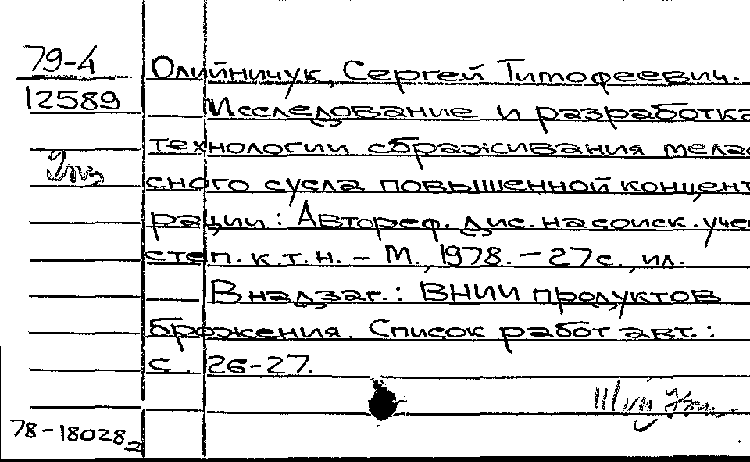 79-4
12589
Олийничук, Сергей Тимофеевич.
Исследование и разработка
технологии сбраживания мелас
сного сусла повышенной концент
рации: Автореф. дис. на соиск. учен
степ. к.т.н. – М., 1978. – 27с., ил.
В надзаг.: ВНИИ продуктов
брожения. Список работ авт.:
с. 26-27.
78-18028₂